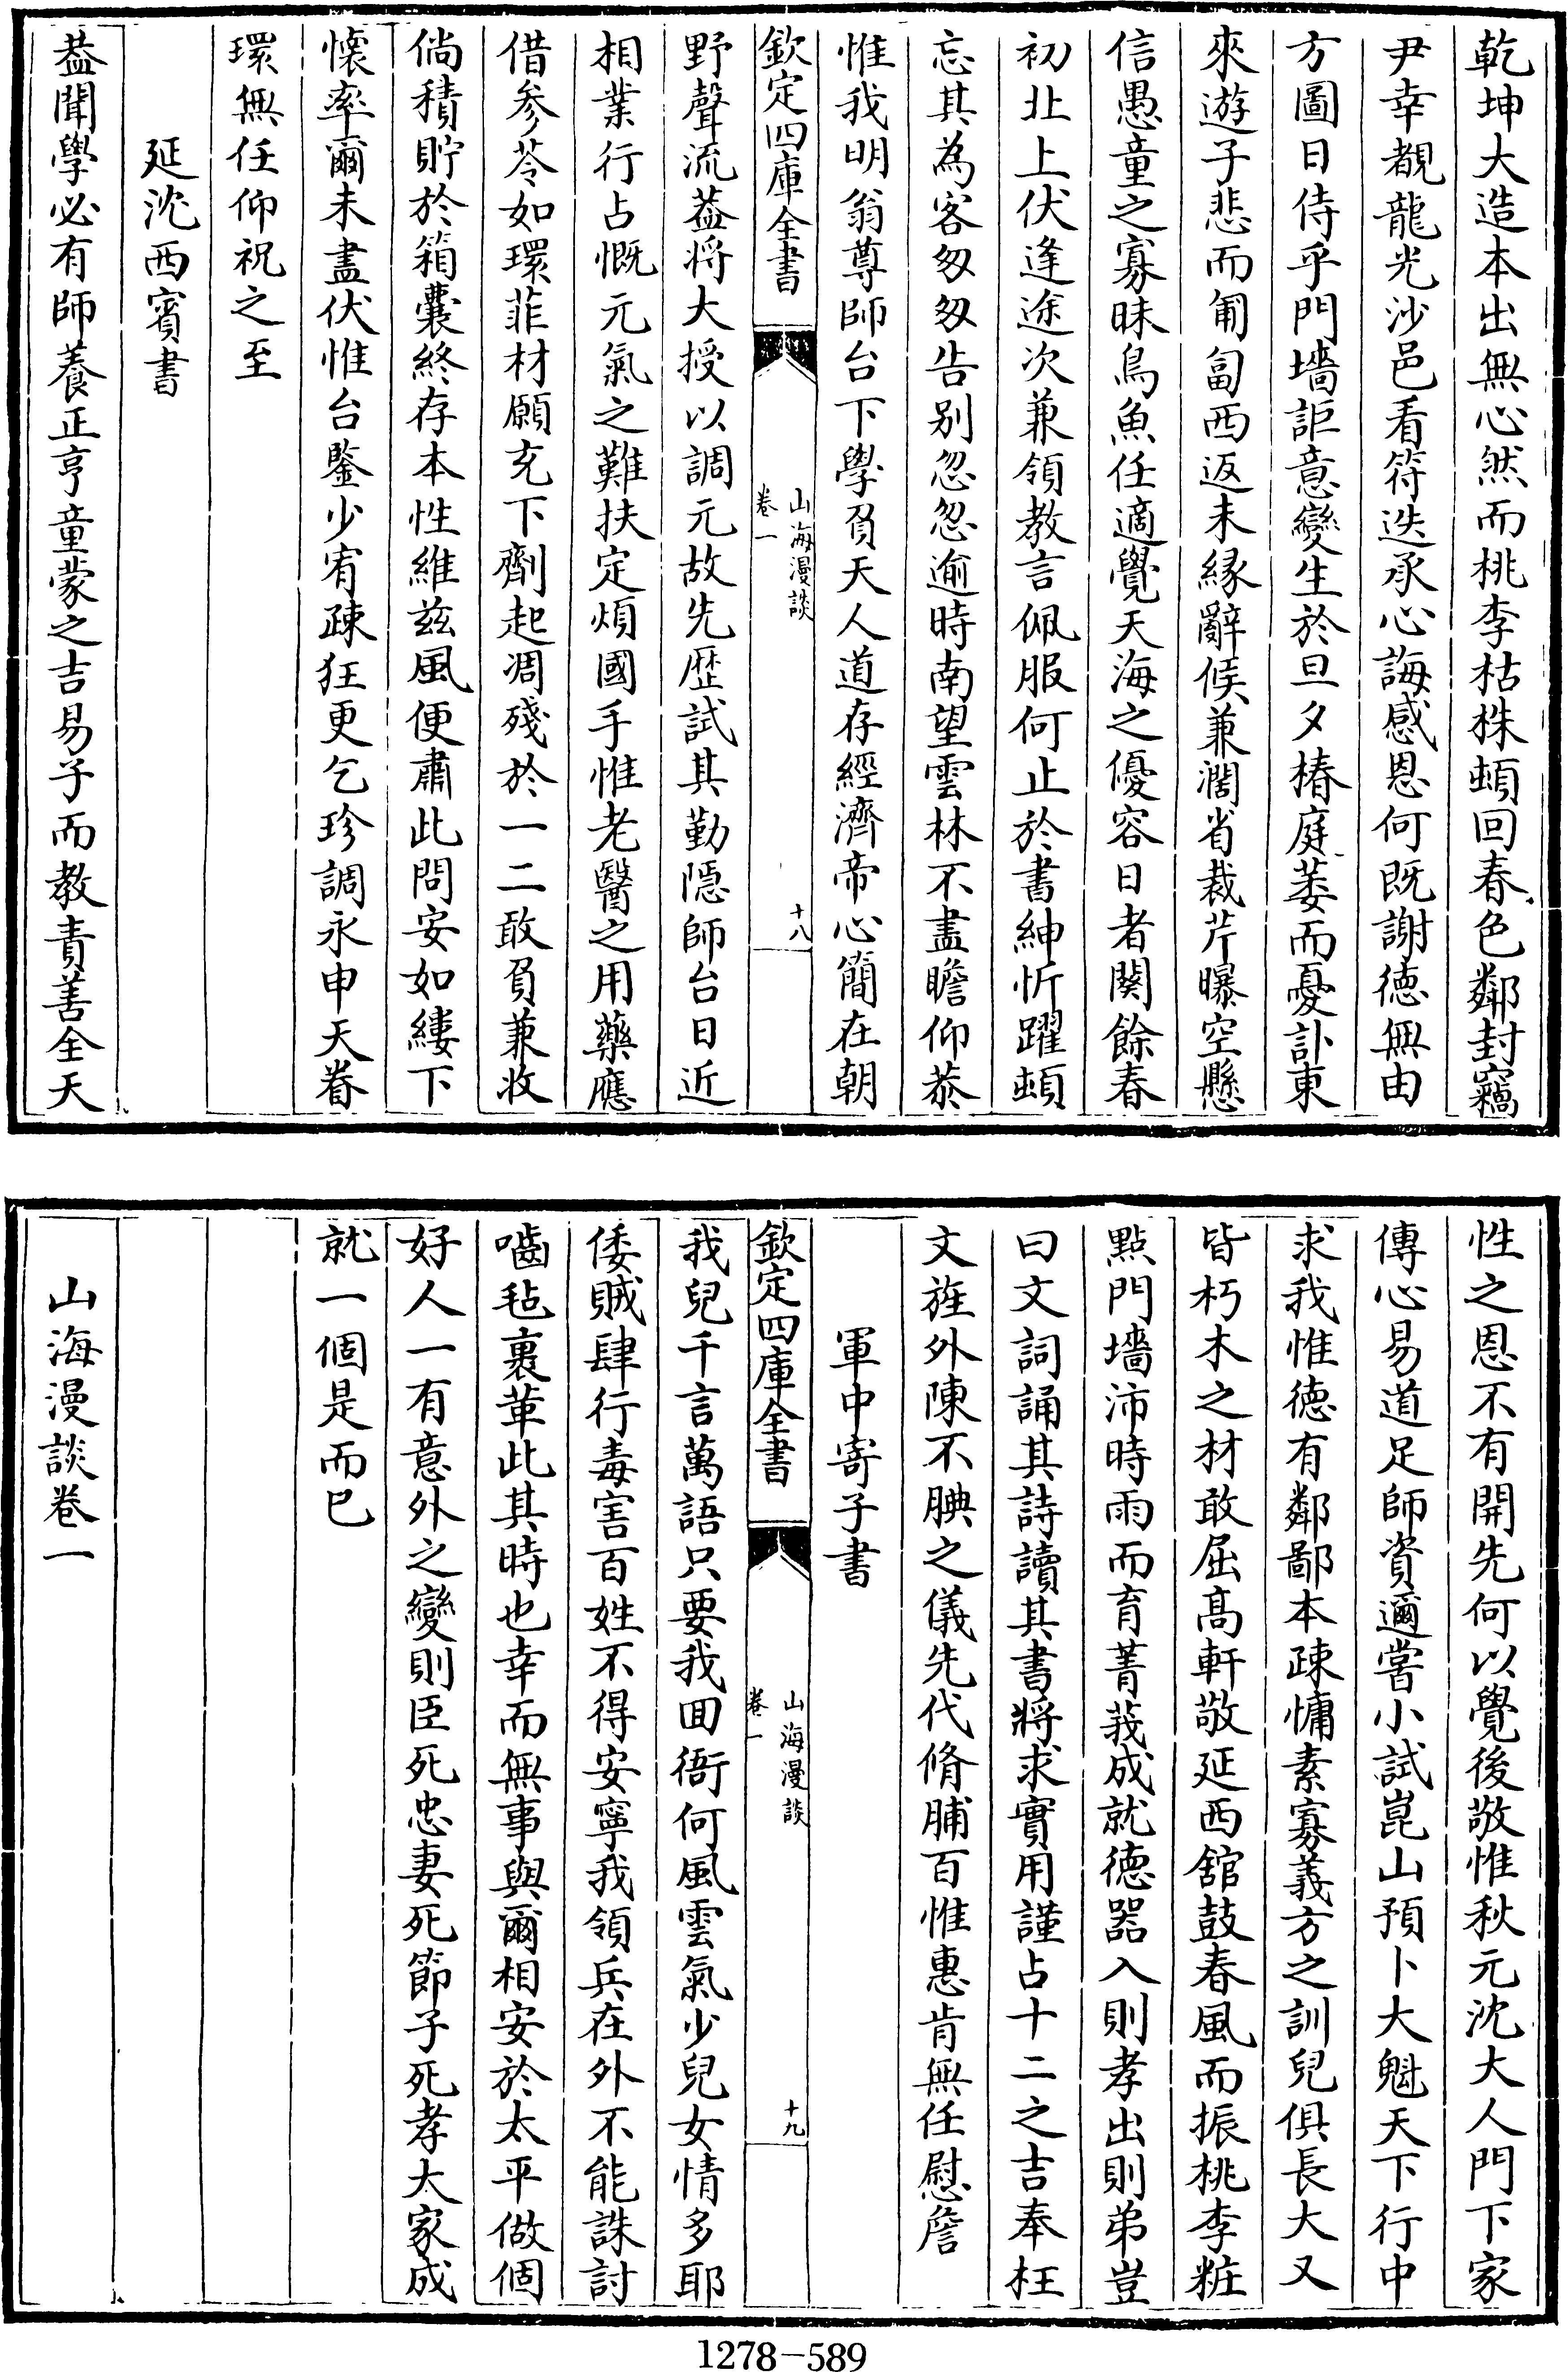 乾坤大造本出無心然而桃李枯株頓回春色鄰封竊
尹幸覩龍光沙邑看符迭承心誨感恩何既謝德無由
方圖日侍乎門墻詎意變生於旦夕椿庭萎而憂訃東
來遊子悲而匍匐西返未緣辭候兼濶省裁芹曝空懸
信愚童之寡昧鳥魚任適覺天海之優容日者闋餘春
初北上伏逢途次兼領教言佩服何止於書紳忻躍頓
忘其為客匆匆告别忽忽逾時南望雲林不盡瞻仰恭
惟我明翁尊師台下學貟天人道存經濟帝心簡在朝
欽定四庫全書
山海漫談
卷一
十八
野聲流葢將大授以調元故先歷試其勤隱師台日近
相業行占慨元氣之難扶定煩國手惟老醫之用藥應
借参苓如環菲材願充下劑起凋殘於一二敢貟兼收
倘積貯於箱囊終存本性維兹風便肅此問安如縷下
懷率爾未盡伏惟台鑒少宥疎狂更乞珍調永申天眷
環無任仰祝之至
延沈西賓書
葢聞學必有師養正亨童蒙之吉易子而教責善全天
性之恩不有開先何以覺後敬惟秋元沈大人門下家
傳心易道足師資邇嘗小試崑山預卜大魁天下行中
求我惟德有鄰鄙本疎慵素寡義方之訓兒俱長大又
皆朽木之材敢屈髙軒敬延西舘鼓春風而振桃李粧
點門墻沛時雨而育菁莪成就德器入則孝出則弟豈
曰文詞誦其詩讀其書將求實用謹占十二之吉奉枉
文旌外陳不腆之儀先代脩脯百惟惠肯無任慰詹
軍中寄子書
欽定四庫全書
山海漫談
卷一
十九
我兒千言萬語只要我囬衙何風雲氣少兒女情多耶
倭賊肆行毒害百姓不得安寧我領兵在外不能誅討
嚙毡裹革此其時也幸而無事與爾相安於太平做個
好人一有意外之變則臣死忠妻死節子死孝大家成
就一個是而已
山海漫談卷一
1278-589